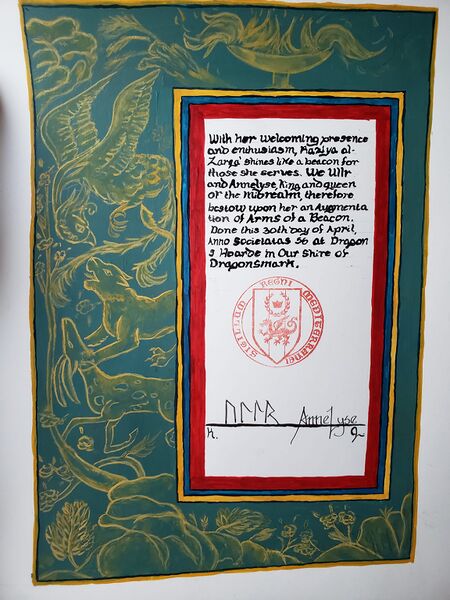 With her welcoming presence
and enthusiasm, Raziya al-
Zarqa' shines like a beacon for
those she serves. We Ullr
and Annelyse, King and queen
of the Midrealm, therefore
bestow upon her an Augmenta
tion of Arms of a Beacon.
Done this 30th day of April,
Anno Societatas 56 at Dragon
s Hoarde in Our Shire of
Dragonsmark.
SIGILLUM REGNI MEDITERRANEI
ᚢᛚᛚᚱ AnneLyse
K. Q